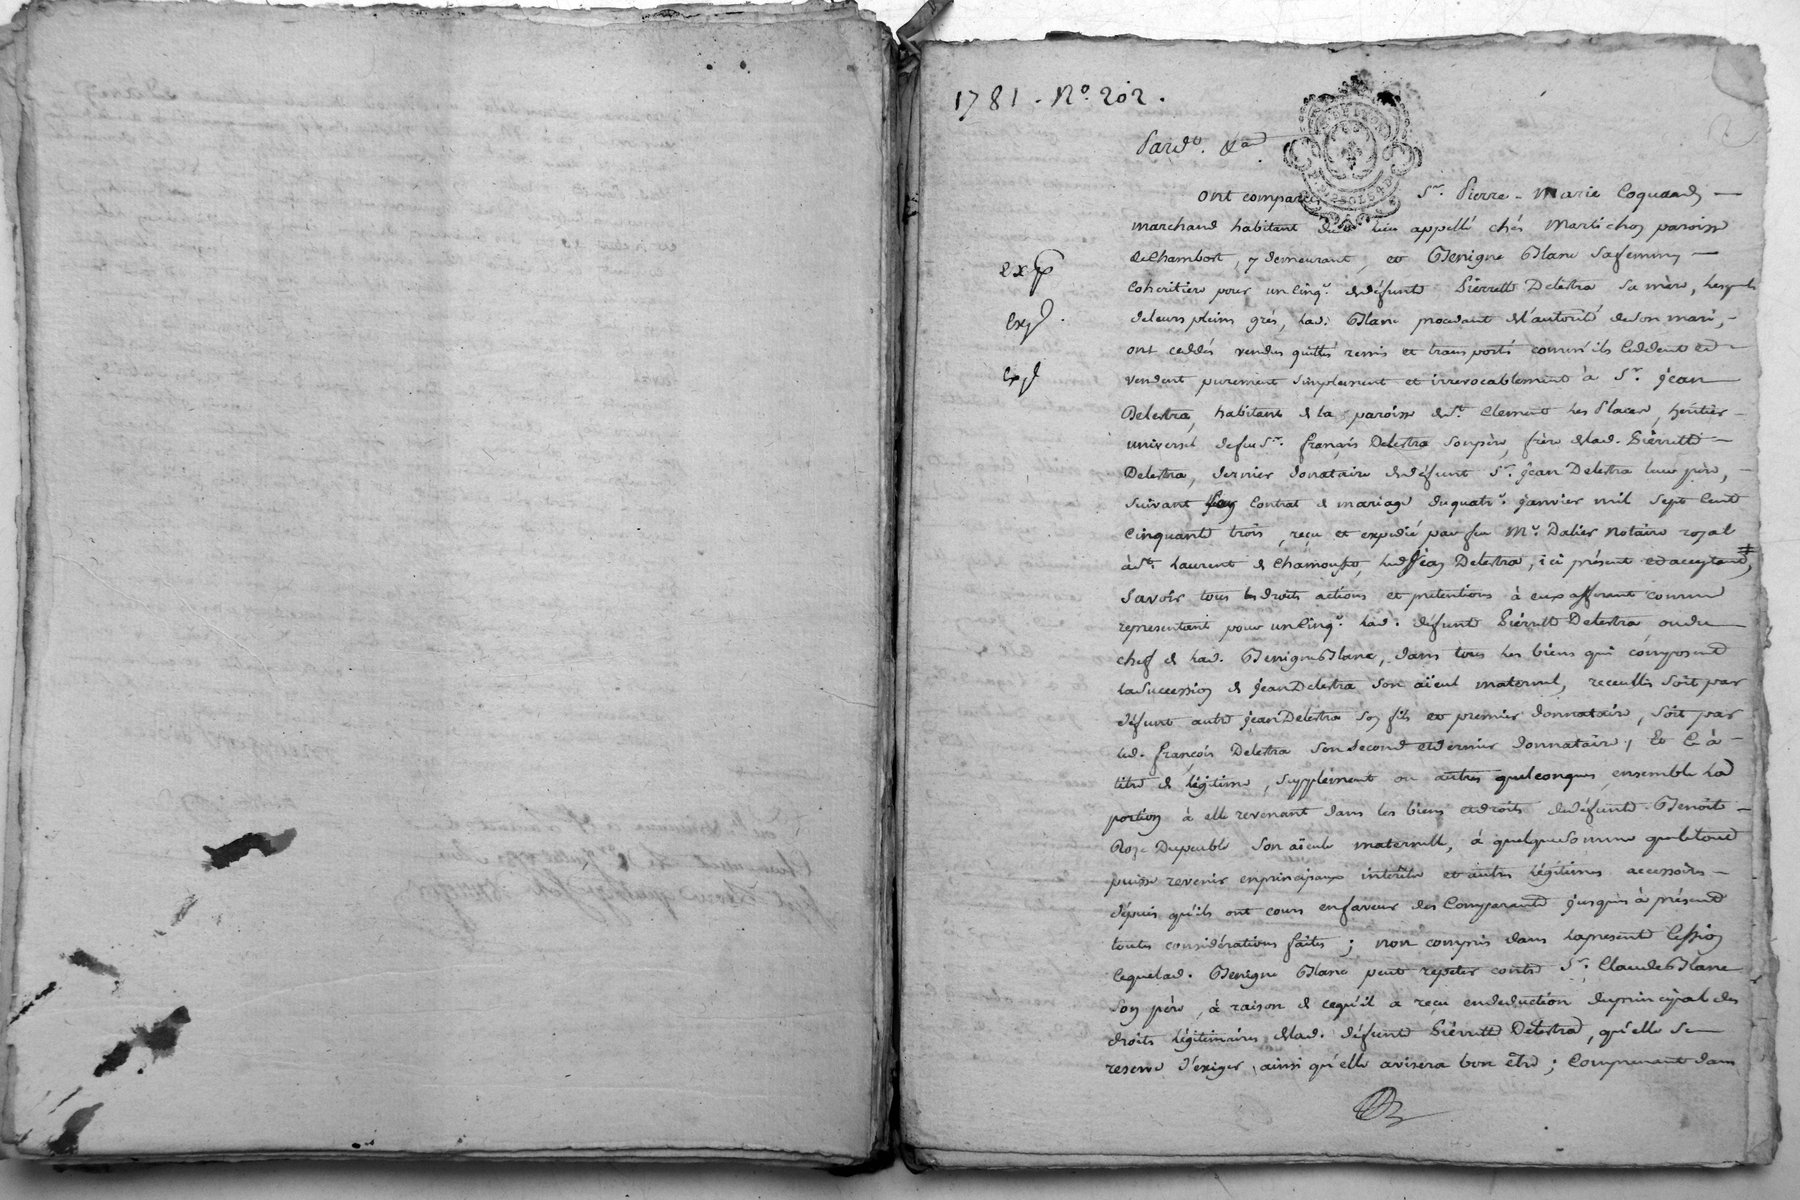 1781 - No. 202.
Pardt. &a
ont comparus Sr. Pierre-Marie Coquard
marchand habitant du lieu appellé chés Martichon paroisse
de Chambost, y demeurant, et Benigne Blanc sa femme
Cohéritiere pour un Cinqe. de défunte Pierrette Delestra sa mère, lesquels
exp
de leurs pleins grés, lad. Blanc procédant de l'autorité de son mari,
exp.
ont ceddés vendus quittés remis et transportés comm'ils Ceddent et
vendent purement simplement et irrevocablement à Sr. jean
exp
Delestra, habitant de la paroisse de St. Clement Les Places, héritier
universel de feu Sr. françois Delestra son père, frère de lad. Pierrette
Delestra, dernier donataire de défunt Sr. jean Delestra leur père,
suivant son Contrat de mariage du quatre. janvier mil sept Cent
Cinquante trois, reçu et expedié par feu Me. Dalier Notaire royal
à St. Laurent de Chamousset, led. Sr. jean Delestra, ici présent et acceptant,
Savoir tous les droits actions et prétentions à eux afférant comme
representant pour un Cinqe. lad. défunte Pierrette Delestra ou du
chef de lad. Benigne Blanc, dans tous les biens qui composent
la Succession de jean Delestra son aïeul maternel, receuillis soit par
défunt autre jean Delestra son fils et premier donnataire, soit par
led. françois Delestra son second et dernier donnataire; Et Ce à
titre de légitime, supplément ou autres quelconques, ensemble la
portion à elle revenant dans les biens et droits de défunte Benoite
Roze Dupeuble son aïeule maternelle, à quelque somme que le tout
puisse revenir en principaux intérêts et autres légitimes accessoires
depuis qu'ils ont cours en faveur des Comparants jusqu'à présent
toutes considérations faites; non compris dans la présente Cession
Ce que lad. Benigne Blanc peut repeter contre Sr. Claude Blanc
son père, à raison de ce qu'il a reçu en déduction du principal des
droits légitimaires de lad. défunte Pierrette Delestra, qu'elle se
reserve d'exiger ainsi qu'elle avisera bon être; Comprenant dans